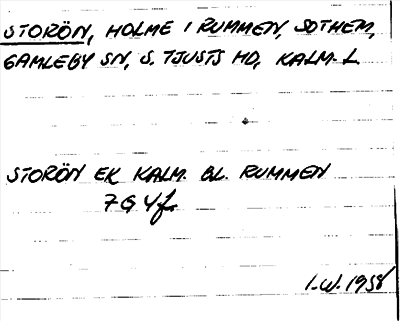 STORÖN, HOLME I RUMMEN, SOTHEM,
GAMLEBY SN, S. TJUSTS HD, KALM. L.
STORÖN EK KALM. BL. RUMMEN
7G4f
I.W. 1958